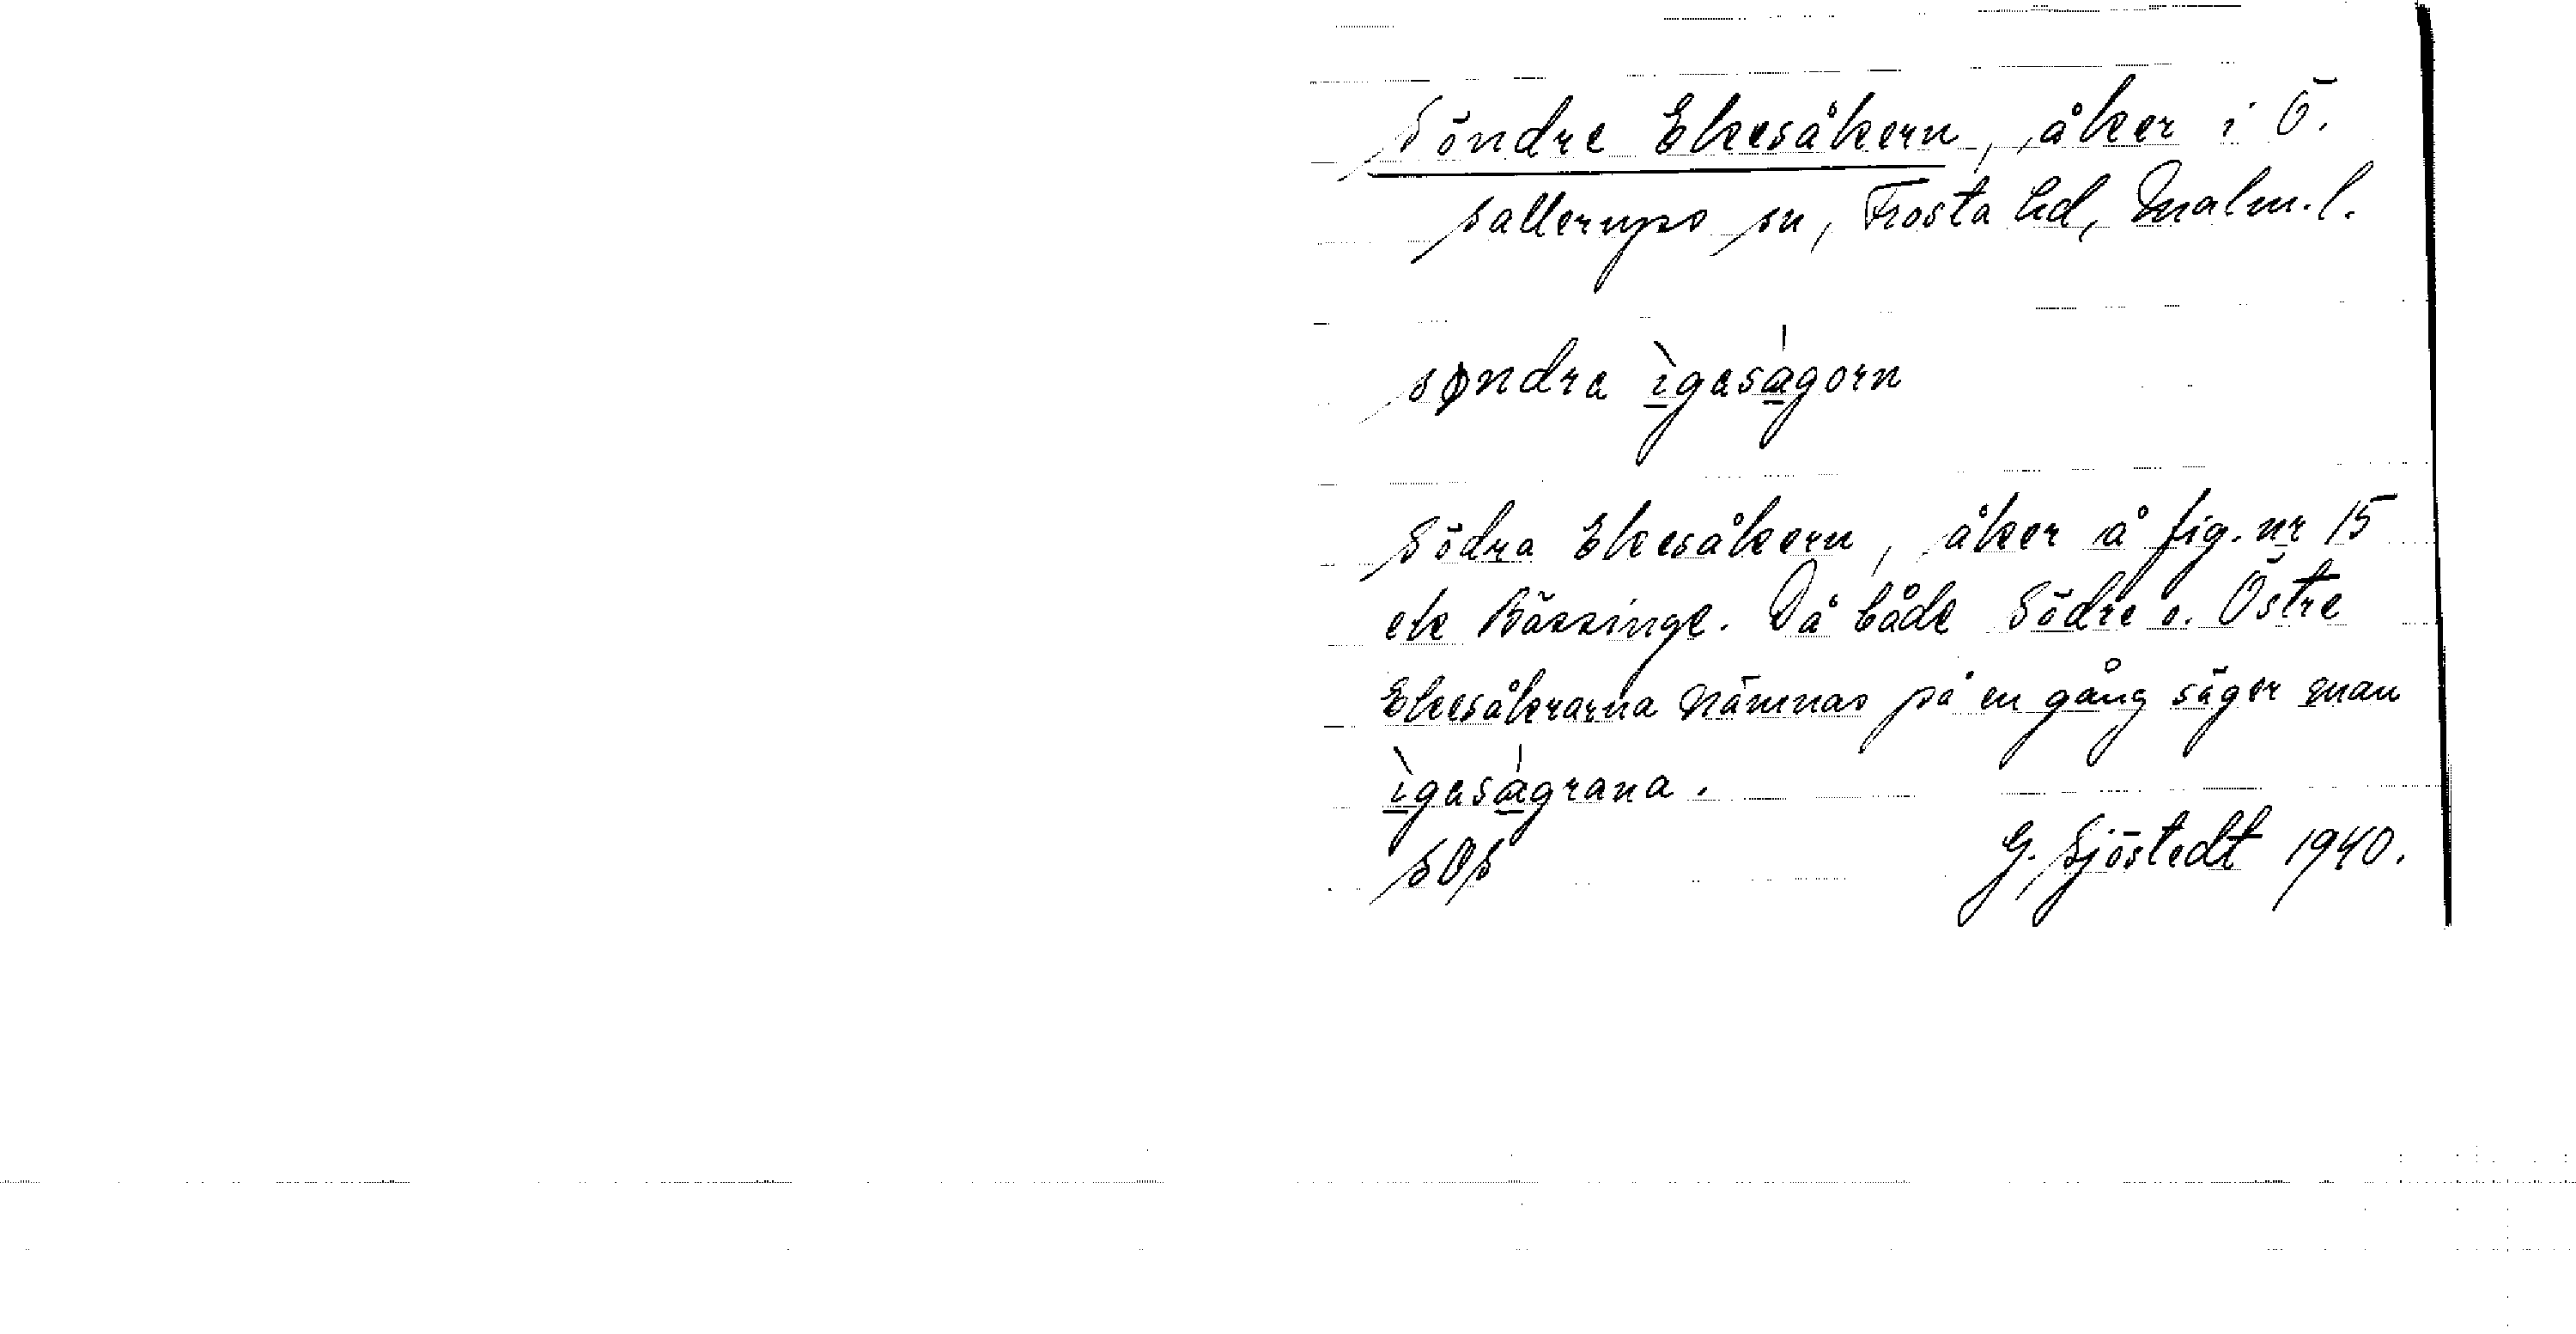 Söndre Ekesåkern, åker i Ö.
Sallerups sn, Frosta hd, Malm.l.
søndra ìgasàgorn
Södra Ekesåkern, åker å fig. nr 15
ek Bässinge. Då både Södre o. Östre
Ekesåkrarna nämnas på en gång säger man
ìgasàgrana.
SOS G. Sjöstedt 1940.